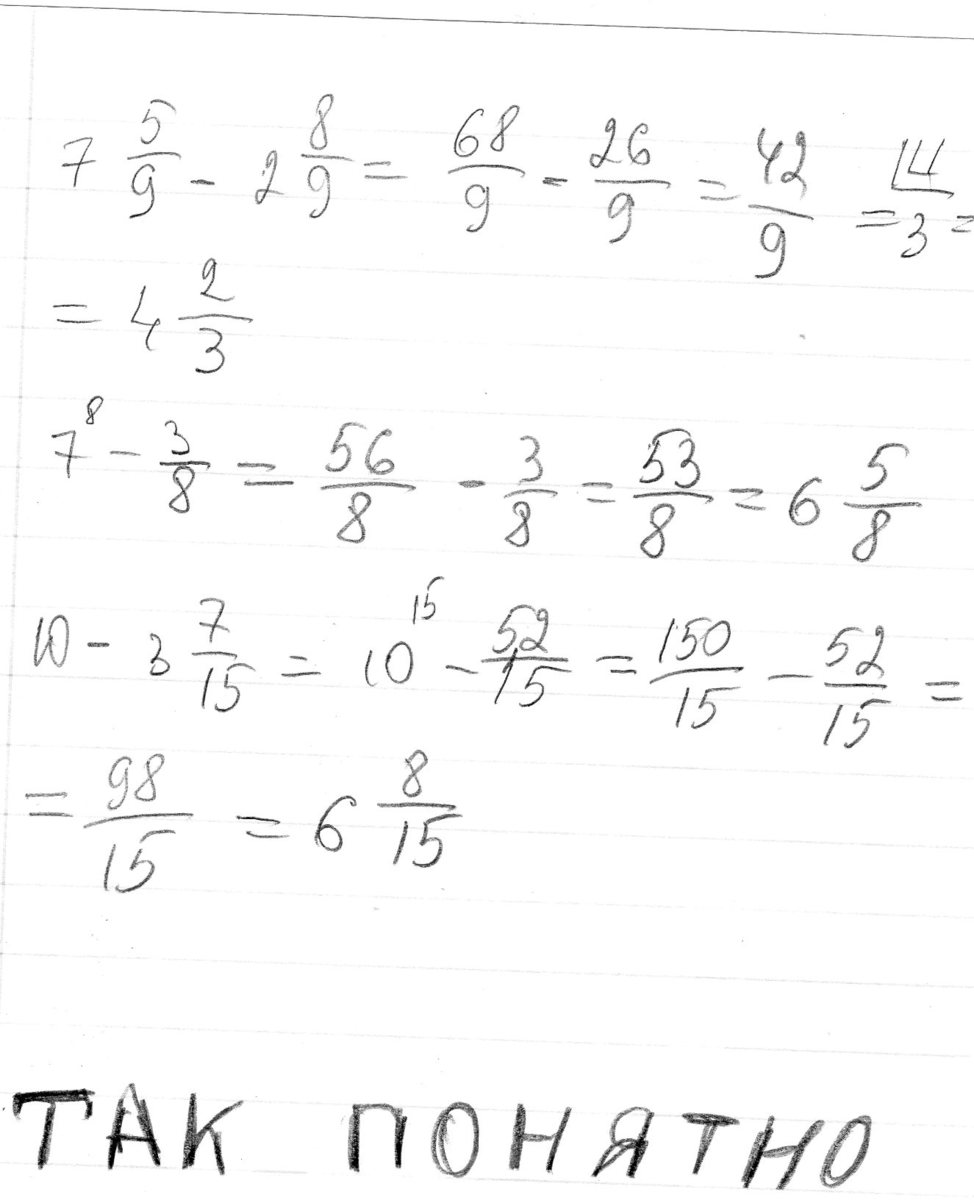 7 5/9 - 2 8/9 = 68/9 - 26/9 = 42/9 = 14/3 =
= 4 2/3
7⁸ - 3/8 = 56/8 - 3/8 = 53/8 = 6 5/8
10 - 3 7/15 = 10¹⁵ - 52/15 = 150/15 - 52/15 =
= 98/15 = 6 8/15
ТАК ПОНЯТНО